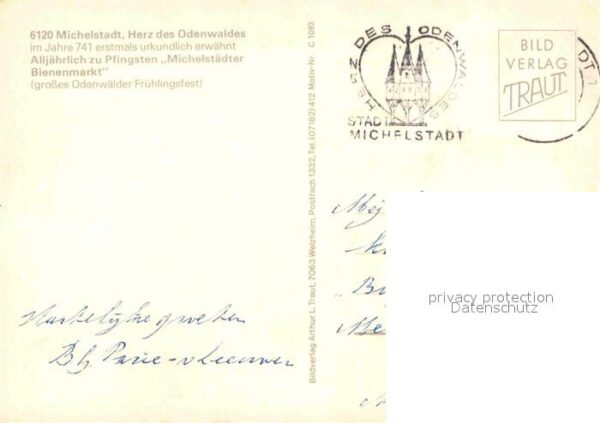 6120 Michelstadt, Herz des Odenwaldes
im Jahre 741 erstmals urkundlich erwähnt
Alljährlich zu Pfingsten „Michelstädter
Bienenmarkt"
(großes Odenwälder Frühlingsfest)
Hartelijke groeten
Bildverlag Arthur L. Traut, 7063 Welzheim, Postfach 1332, Tel. (07182) 412 Motiv-Nr. C 1093
HERZ DES ODENWALDES
STADT
MICHELSTADT
BILD
VERLAG
TRAUT
DT 1
privacy protection
Datenschutz